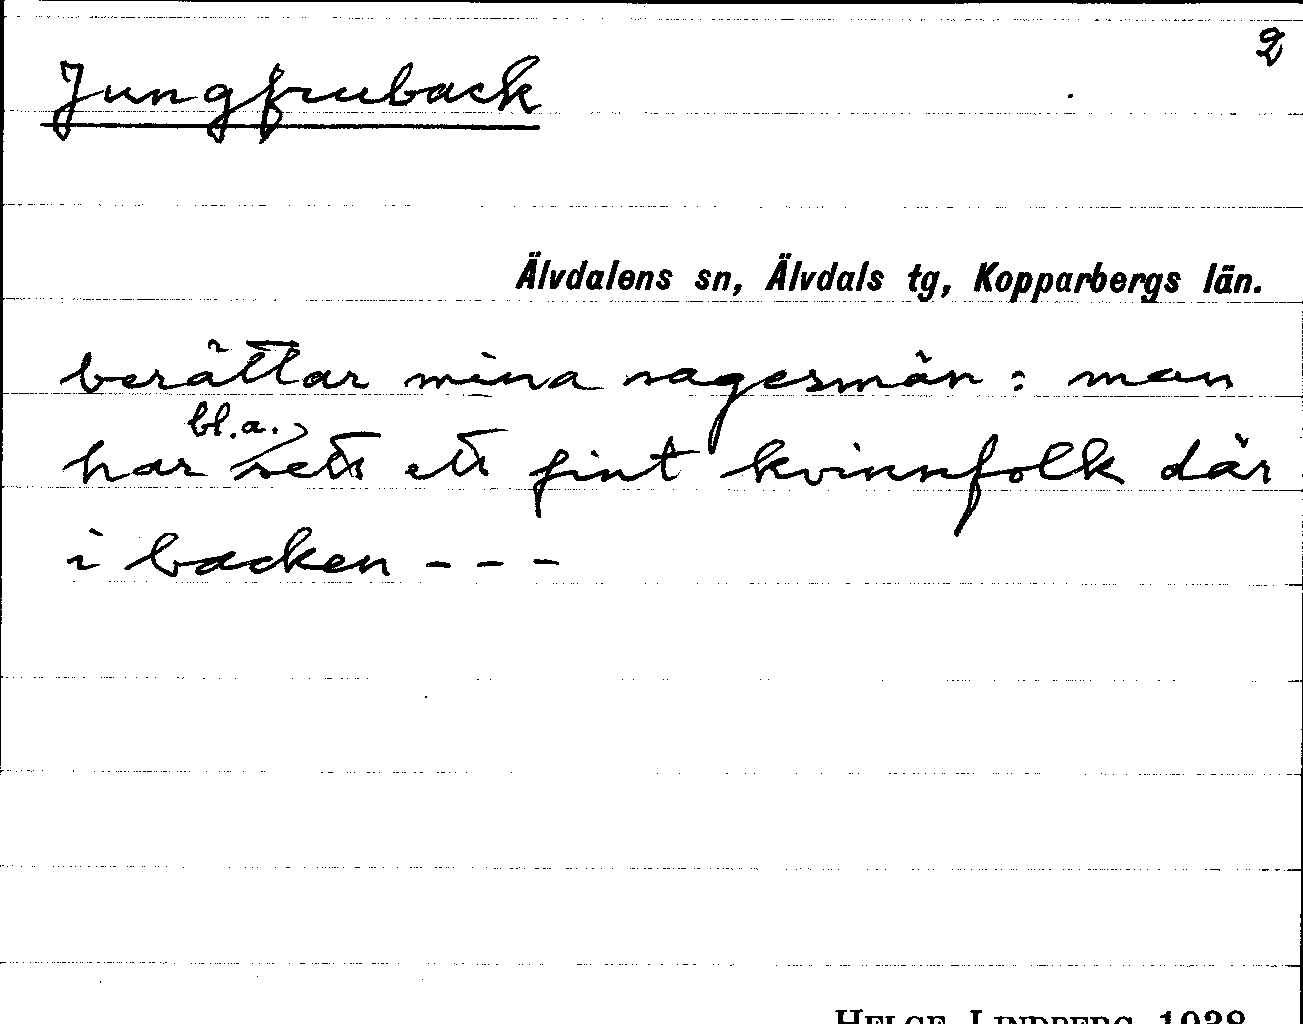 2
Jungfruback
Älvdalens sn, Älvdals tg, Kopparbergs län.
berättar mina sagesmän: man
har bl.a. sett ett fint kvinnfolk där
i backen - - -
HELGE LINDBERG 1938